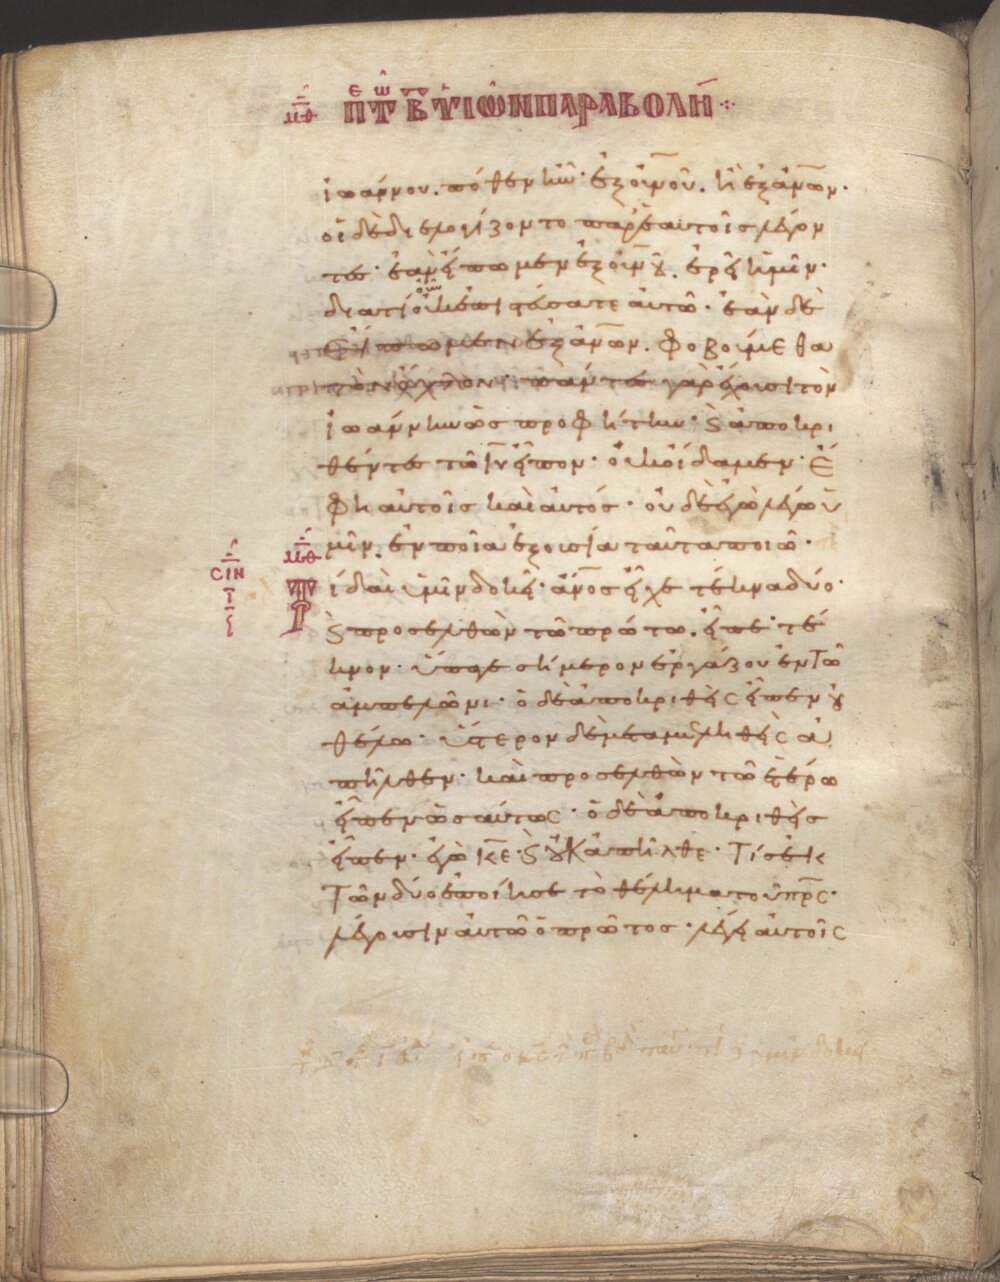 μθ ΠΕΡΤΩΝ Β ΥΙΩΝ ΠΑΡΑΒΟΛΗ
ἰωάννου. πόθεν ἦν· ἐξ οὐνοῦ. ἢ ἐξ ἀνων·
οἱ δὲ διελογίζοντο παρ' ἑαυτοῖς λέγον
τες· ἐὰν εἴπωμεν ἐξ οὐνοῦ. ἐρεῖ ἡμῖν·
διατί οὖν οὐκ ἐπιστεύσατε αὐτῶ· ἐὰν δὲ
εἴπωμεν ἐξ ἀνων. φοβούμεθα
τὸν ὄχλον· πάντες γὰρ ἔχουσι τὸν
ἰωάννην ὡς προφήτην· καὶ ἀποκρι
θέντες τῶ ιυ εἶπον· οὐκ οἴδαμεν· ἔ
φη αὐτοῖς καὶ αὐτός· οὐδὲ ἐγὼ λέγω ὑ
μῖν. ἐν ποῖα ἐξουσία ταῦτα ποιῶ·
μθ
Τί δαὶ ὑμῖν δοκεῖ· ἀνος εἶχε τέκνα δύο·
καὶ προσελθὼν τῶ πρώτω. εἶπε· τέ
κνον· ὕπαγε σήμερον ἐργάζου ἐν τῶ
ἀμπελῶνι· ὁ δὲ ἀποκριθεὶς εἶπεν οὐ
θέλω· ὕστερον δὲ μεταμεληθεὶς ἀ
πῆλθεν· καὶ προσελθὼν τῶ ἑτέρω
εἶπεν ὡσαύτως· ὁ δὲ ἀποκριθεὶς
εἶπεν· ἐγὼ κε· καὶ οὐκ ἀπῆλθε· τίς ἐκ
τῶν δύο ἐποίησε τὸ θέλημα τοῦ πρς·
λέγουσιν αὐτῶ ὁ πρῶτος· λέγει αὐτοῖς